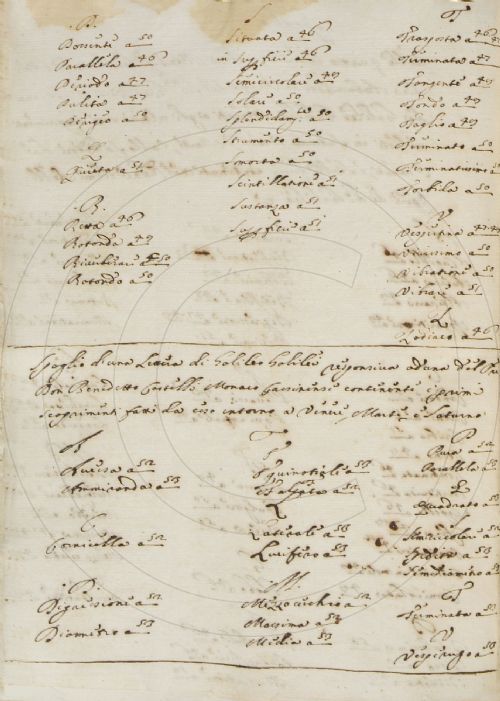 .P.
Possente a 50
Parallela a 46
Periodo a 47
Pulita a 47
Q
Quieta a 51
.R.
Retta a 46
Rotonda a 49
Rotondo a 50
S
Situata a 46
in superficie 46
Semicircolare a 49
Solare a 50
Splendidam.te a 50
Strumento a 50
Smorto a 50
Scintillatione a 51
Sustanza a 51
Superficie a 51
T
Trasposta a 46
Terminata a 47
Tangente a 49
Tondo a 49
Taglio a 49
Terminato a 50
Terminatissimo
Torbida a 50
V
Vespertina a 47
Vicinissimo a 50
Vibratione a 50
Vibrare a 51
Z
Zodiaco a 46
Spoglio di una Lettera di Galileo Galilei responsiva ad una del
Don Benedetto Castelli Monaco Cassinense continente i primi
scoprimenti fatti da esso intorno a Venere, Marte e Saturno
A
Ammiranda a 53
C
Cornicella a 52
.D.
Digressione a 52
Diametro a 53
F
Falcata a 53
L
Laterale a 53
Lucifero a 53
.M.
Mezzo cerchio a 52
Massima a 53
Media a 53
P
Pura a 52
Parallela a 53
Q
Quadrato a 53
Semicircolare a 52
Sfera a 53
Semidiametro a 53
T
Terminata a 52
V
Vesperugo a 53